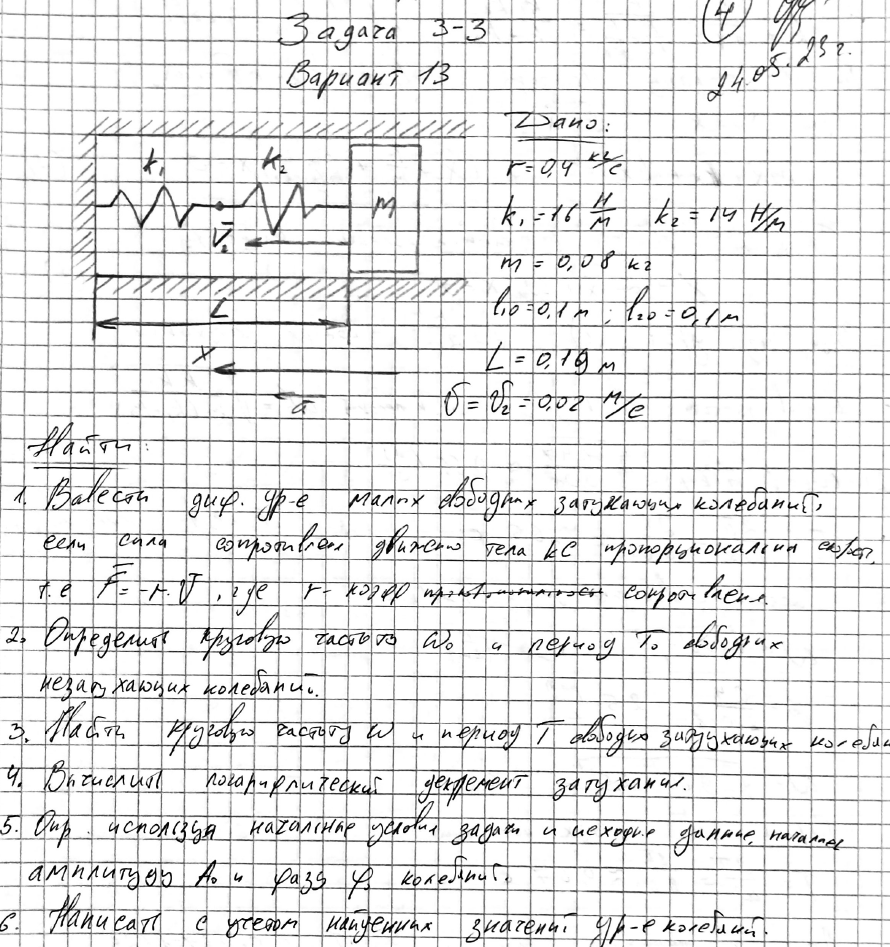 Задача 3-3
4
Вариант 13
24.05.23г.
Дано:
r=0,4 кг/с
k₁=16 Н/м k₂=14 Н/м
m=0,08 кг
l₁₀=0,1м; l₂₀=0,1м
L=0,19м
V=V₂=0,02 м/с
k₁ k₂ m
V₂
L
X
a
Найти:
1. Вывести диф. ур-е малых свободных затухающих колебаний,
если сила сопротивлен движению тела kС пропорциональна скорст,
т.е F=-r·V, где r- коэфф сопротивления.
2. Определить круговую частоту ω₀ и период T₀ свободных
незатухающих колебаний.
3. Найти круговую частоту ω и период T свободно затухающих колебан
4. Вычислить логарифмический декремент затухания.
5. Опр. используя начальные условия задачи и исходные данные, начальн
амплитуду A₀ и фазу φ₀ колебаний.
6. Написать с учетом найденных значений ур-е колебаний.